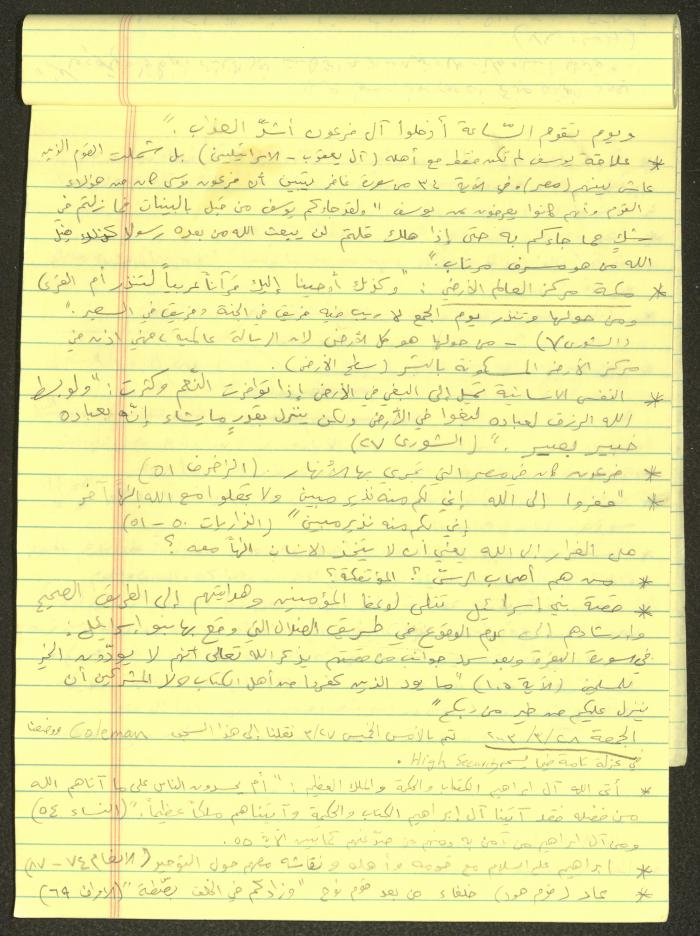 ويوم تقوم السّاعة أدخلوا آل فرعون أشدّ العذاب ."
* علاقة يوسف لم تكن فقط مع أهله (آل يعقوب - الاسرائيليين) بل شملت القوم الذين
عاش بينهم (مصر) وفي الآية ٣٤ من سورة غافر يتبين أن فرعون موسى كان من هؤلاء
القوم وأنهم كانوا يعرفون عن يوسف "ولقد جاءكم يوسف من قبل بالبينات فما زلتم في
شكٍ مما جاءكم به حتى إذا هلك قلتم لن يبعث الله من بعده رسولاً كذلك يضلّ
الله من هو مسرف مرتاب."
* مكة مركز العالم الأرضي : "وكذلك أوحينا إليك قرآناً عربياً لتنذر أم القرى
ومن حولها وتنذر يوم الجمع لا ريب فيه فريق في الجنة وفريق في السعير."
(الشورى ٧) - من حولها هو كل الأرض لان الرسالة عالمية فهي اذن في
مركز الأرض المسكونة بالبشر (سطح الأرض).
* النفس الانسانية تميل إلى البغي في الأرض إذا توافرت النّعم وكثرت : "ولو بسط
الله الرزق لعباده لبغوا في الأرض ولكن ينزل بقدرٍ ما يشاء إنّه بعباده
خبير بصير ." (الشورى ٢٧)
* فرعون كان في مصر التي تجري بها الأنهار . (الزخرف ٥١)
* "ففروا إلى الله إني لكم منه نذير مبين ولا تجعلوا مع الله الهاً آخر
إني لكم منه نذير مبين" (الذاريات ٥٠ - ٥١)
هل الفرار إلى الله يعني أن لا يتخذ الانسان الهاً معه ؟
* من هم أصحاب الرسّ ؟ المؤتفكة؟
* قصة بني إسرائيل تتلى لوعظ المؤمنين وهدايتهم إلى الطريق الصحيح
وإرشادهم إلى عدم الوقوع في طريق الضلال التي وقع بها بنو إسرائيل :
في سورة البقرة وبعد سرد جوانب من قصتهم يذكر الله تعالى أنهم لا يودّون الخير
للمسلمين (الآية ١٠٥) "ما يود الذين كفروا من أهل الكتاب ولا المشركين أن
ينزل عليكم من خير من ربكم"
الجمعة ٢٨/٣/٢٠٠٣ تم بالأمس الخميس ٢٧/٣ نقلنا إلى هذا السجن Coleman ووضعنا
في عزلة تامة High Security .
* أتى الله آل ابراهيم الكتاب والحكمة والملك العظيم : "أم يحسدون الناس على ما آتاهم الله
من فضله فقد آتينا آل إبراهيم الكتاب والحكمة وآتيناهم ملكاً عظيماً." (النساء ٥٤)
ومن آل ابراهيم من آمن به ومنهم من صدّ عنهم كما تبين الآية ٥٥.
* ابراهيم عليه السلام مع قومه وأهله ونقاشه معهم حول التوحيد (الانعام ٧٤ - ٨٧)
* عاد (قوم هود) خلفاء من بعد قوم نوح "وزادكم في الخلق بصطة" (الاعراف ٦٩)